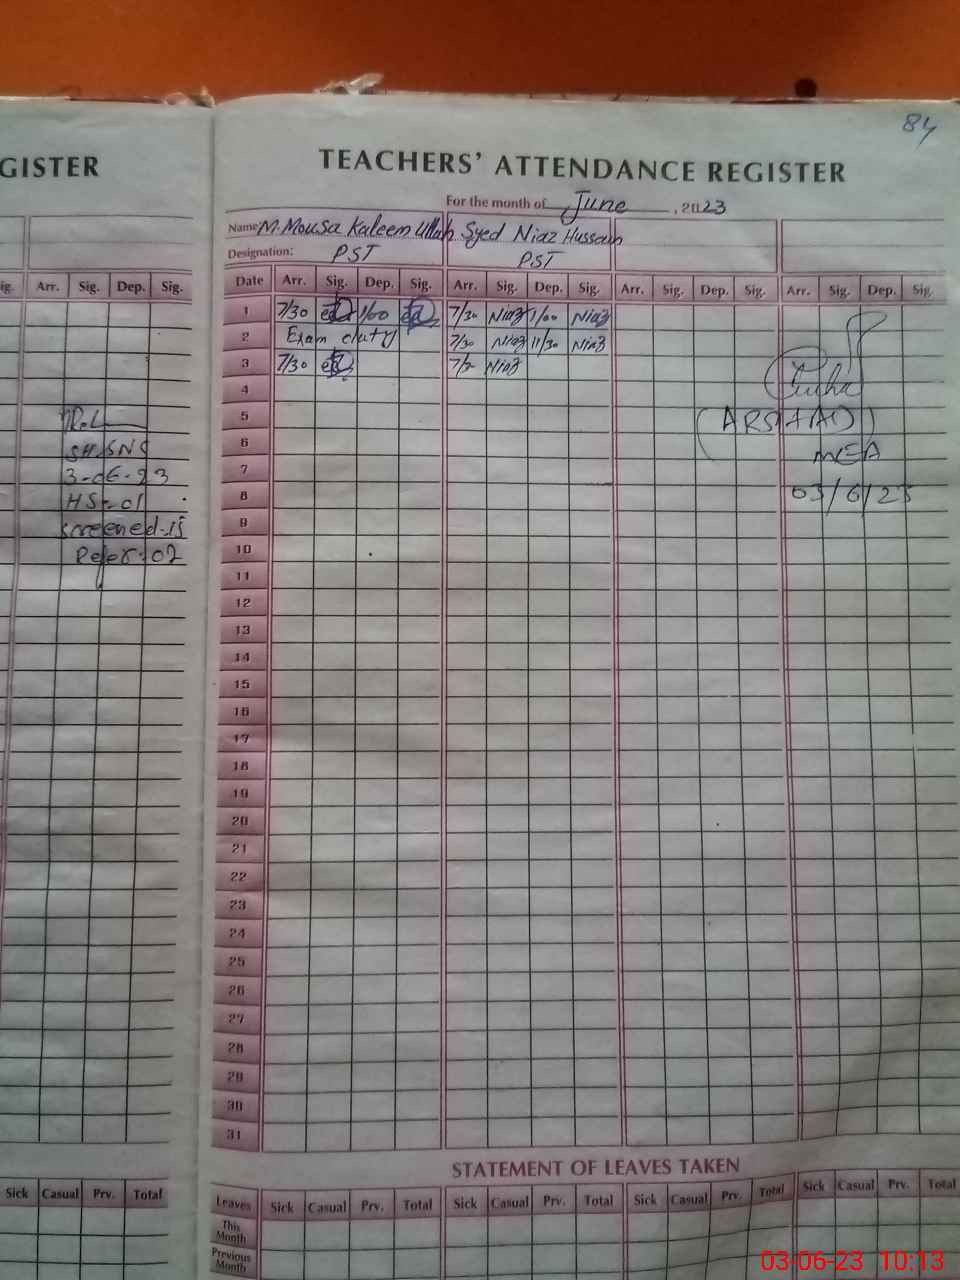 84
GISTER
TEACHERS' ATTENDANCE REGISTER
For the month of June, 2023
Name M. Mousa Kaleem Ullah Syed Niaz Hussain
Designation: PST PST
ig. Arr. Sig. Dep. Sig.
Date Arr. Sig. Dep. Sig. Arr. Sig. Dep. Sig. Arr. Sig. Dep. Sig. Arr. Sig. Dep. Sig.
1 7/30 1/00 7/30 Niaz 1/00 Niaz
2 Exam duty 7/30 Niaz 11/30 Niaz
3 7/30 7/30 Niaz
4
5 (ARSHAD)
6 MEA
7
8 03/6/23
9
10
11
12
13
14
15
16
17
18
19
20
21
22
23
24
25
26
27
28
29
30
31
SH&SNS
3-06-23
HS-01
screened-15
Refer-02
STATEMENT OF LEAVES TAKEN
Sick Casual Prv. Total
Leaves Sick Casual Prv. Total Sick Casual Prv. Total Sick Casual Prv. Total Sick Casual Prv. Total
This Month
Previous Month
03-06-23 10:13